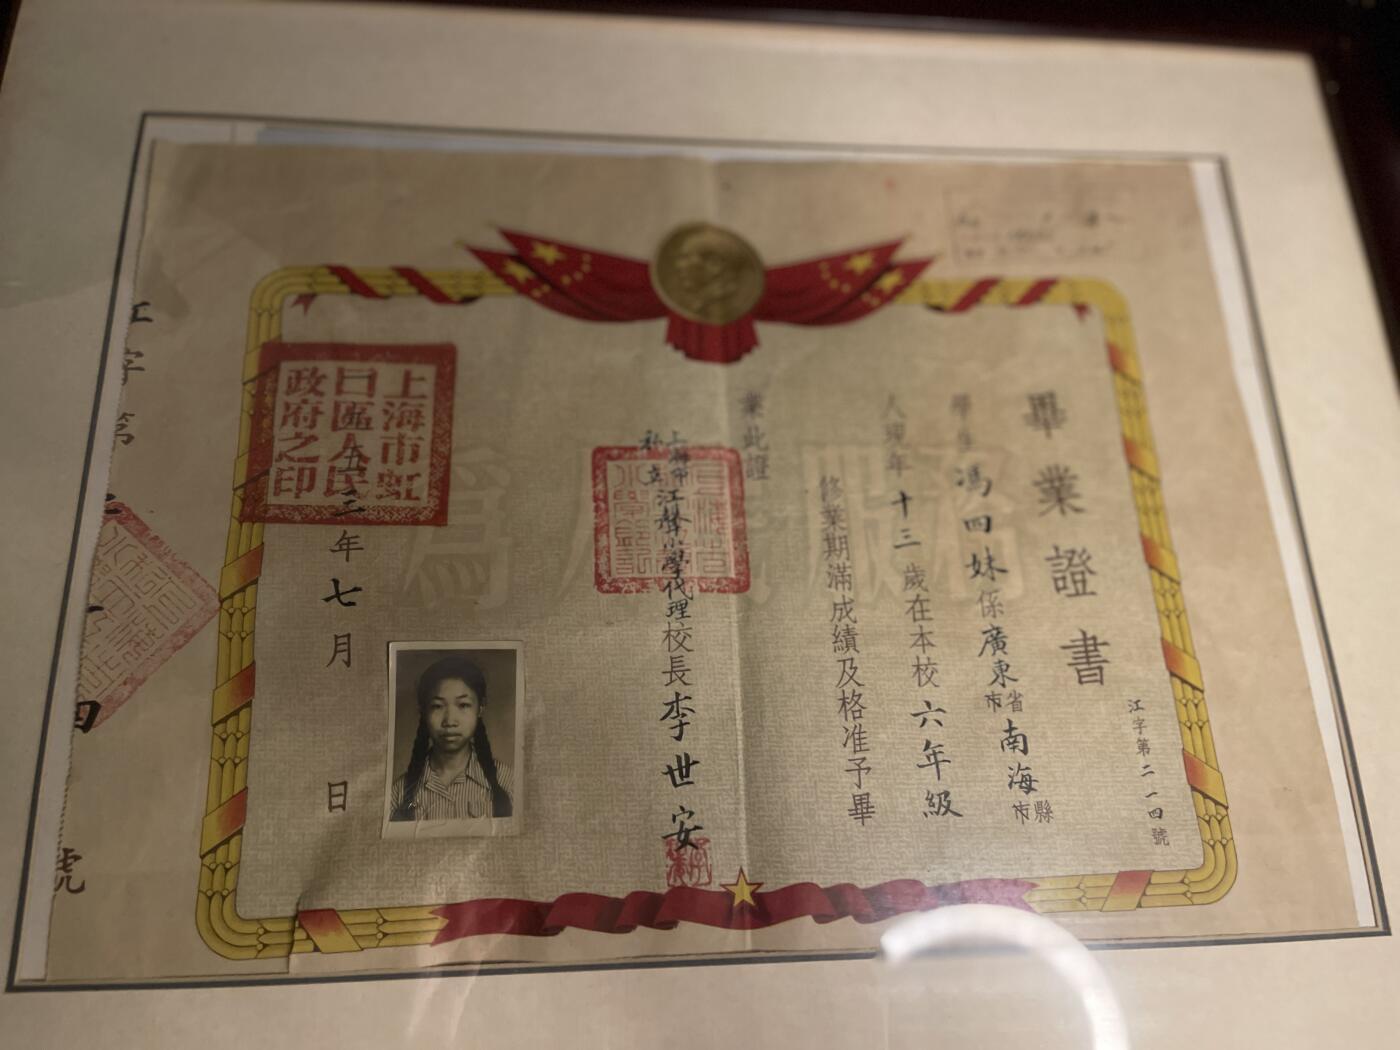 畢業證書
江字第二一四號
學生馮四妹係廣東省市南海縣市
人現年十三歲在本校六年級
修業期滿成績及格准予畢
業此證
上海市私立江聲小學代理校長李世安
五三年七月 日
上海市虹
口區人民
政府之印
為人民服務
江字第二一四號